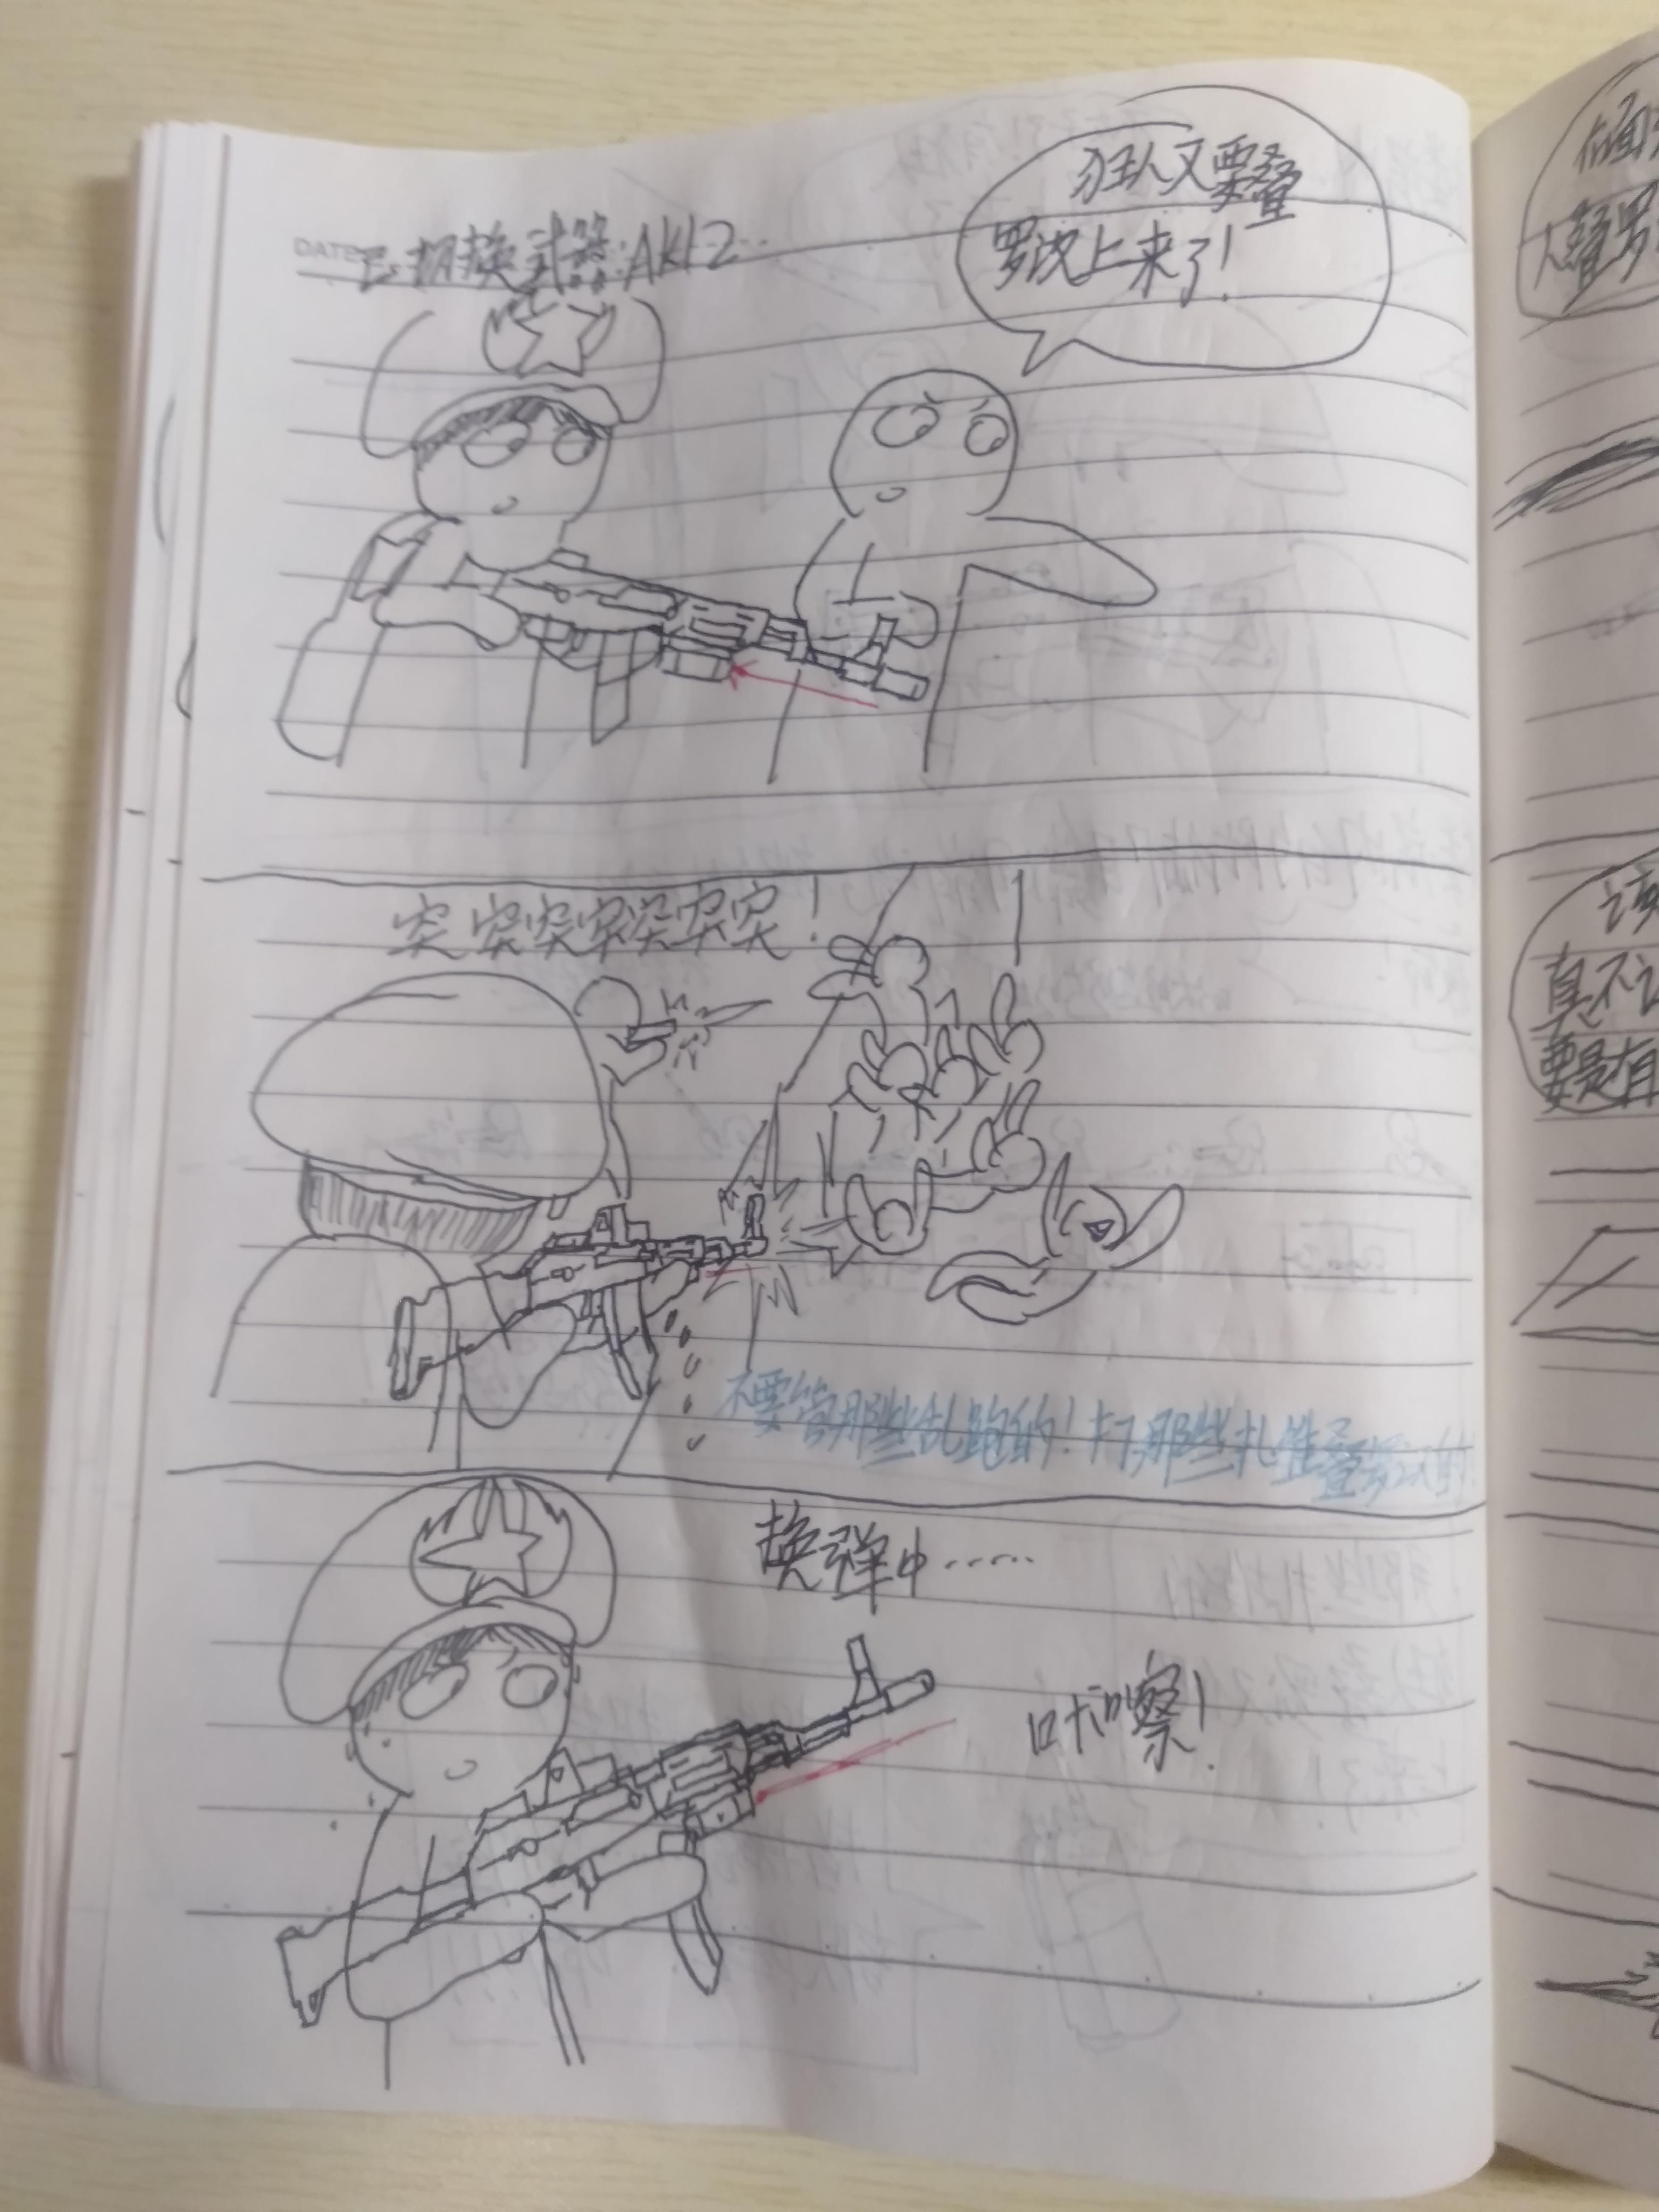 DATE
已切换武器:AK12..
狂人又要叠
罗汉上来了!
突突突突突突突!
不要管那些乱跑的!打那些扎堆叠罗汉的!
换弹中……
咔嚓!
在面
人叠罗
该
真不让
要是有